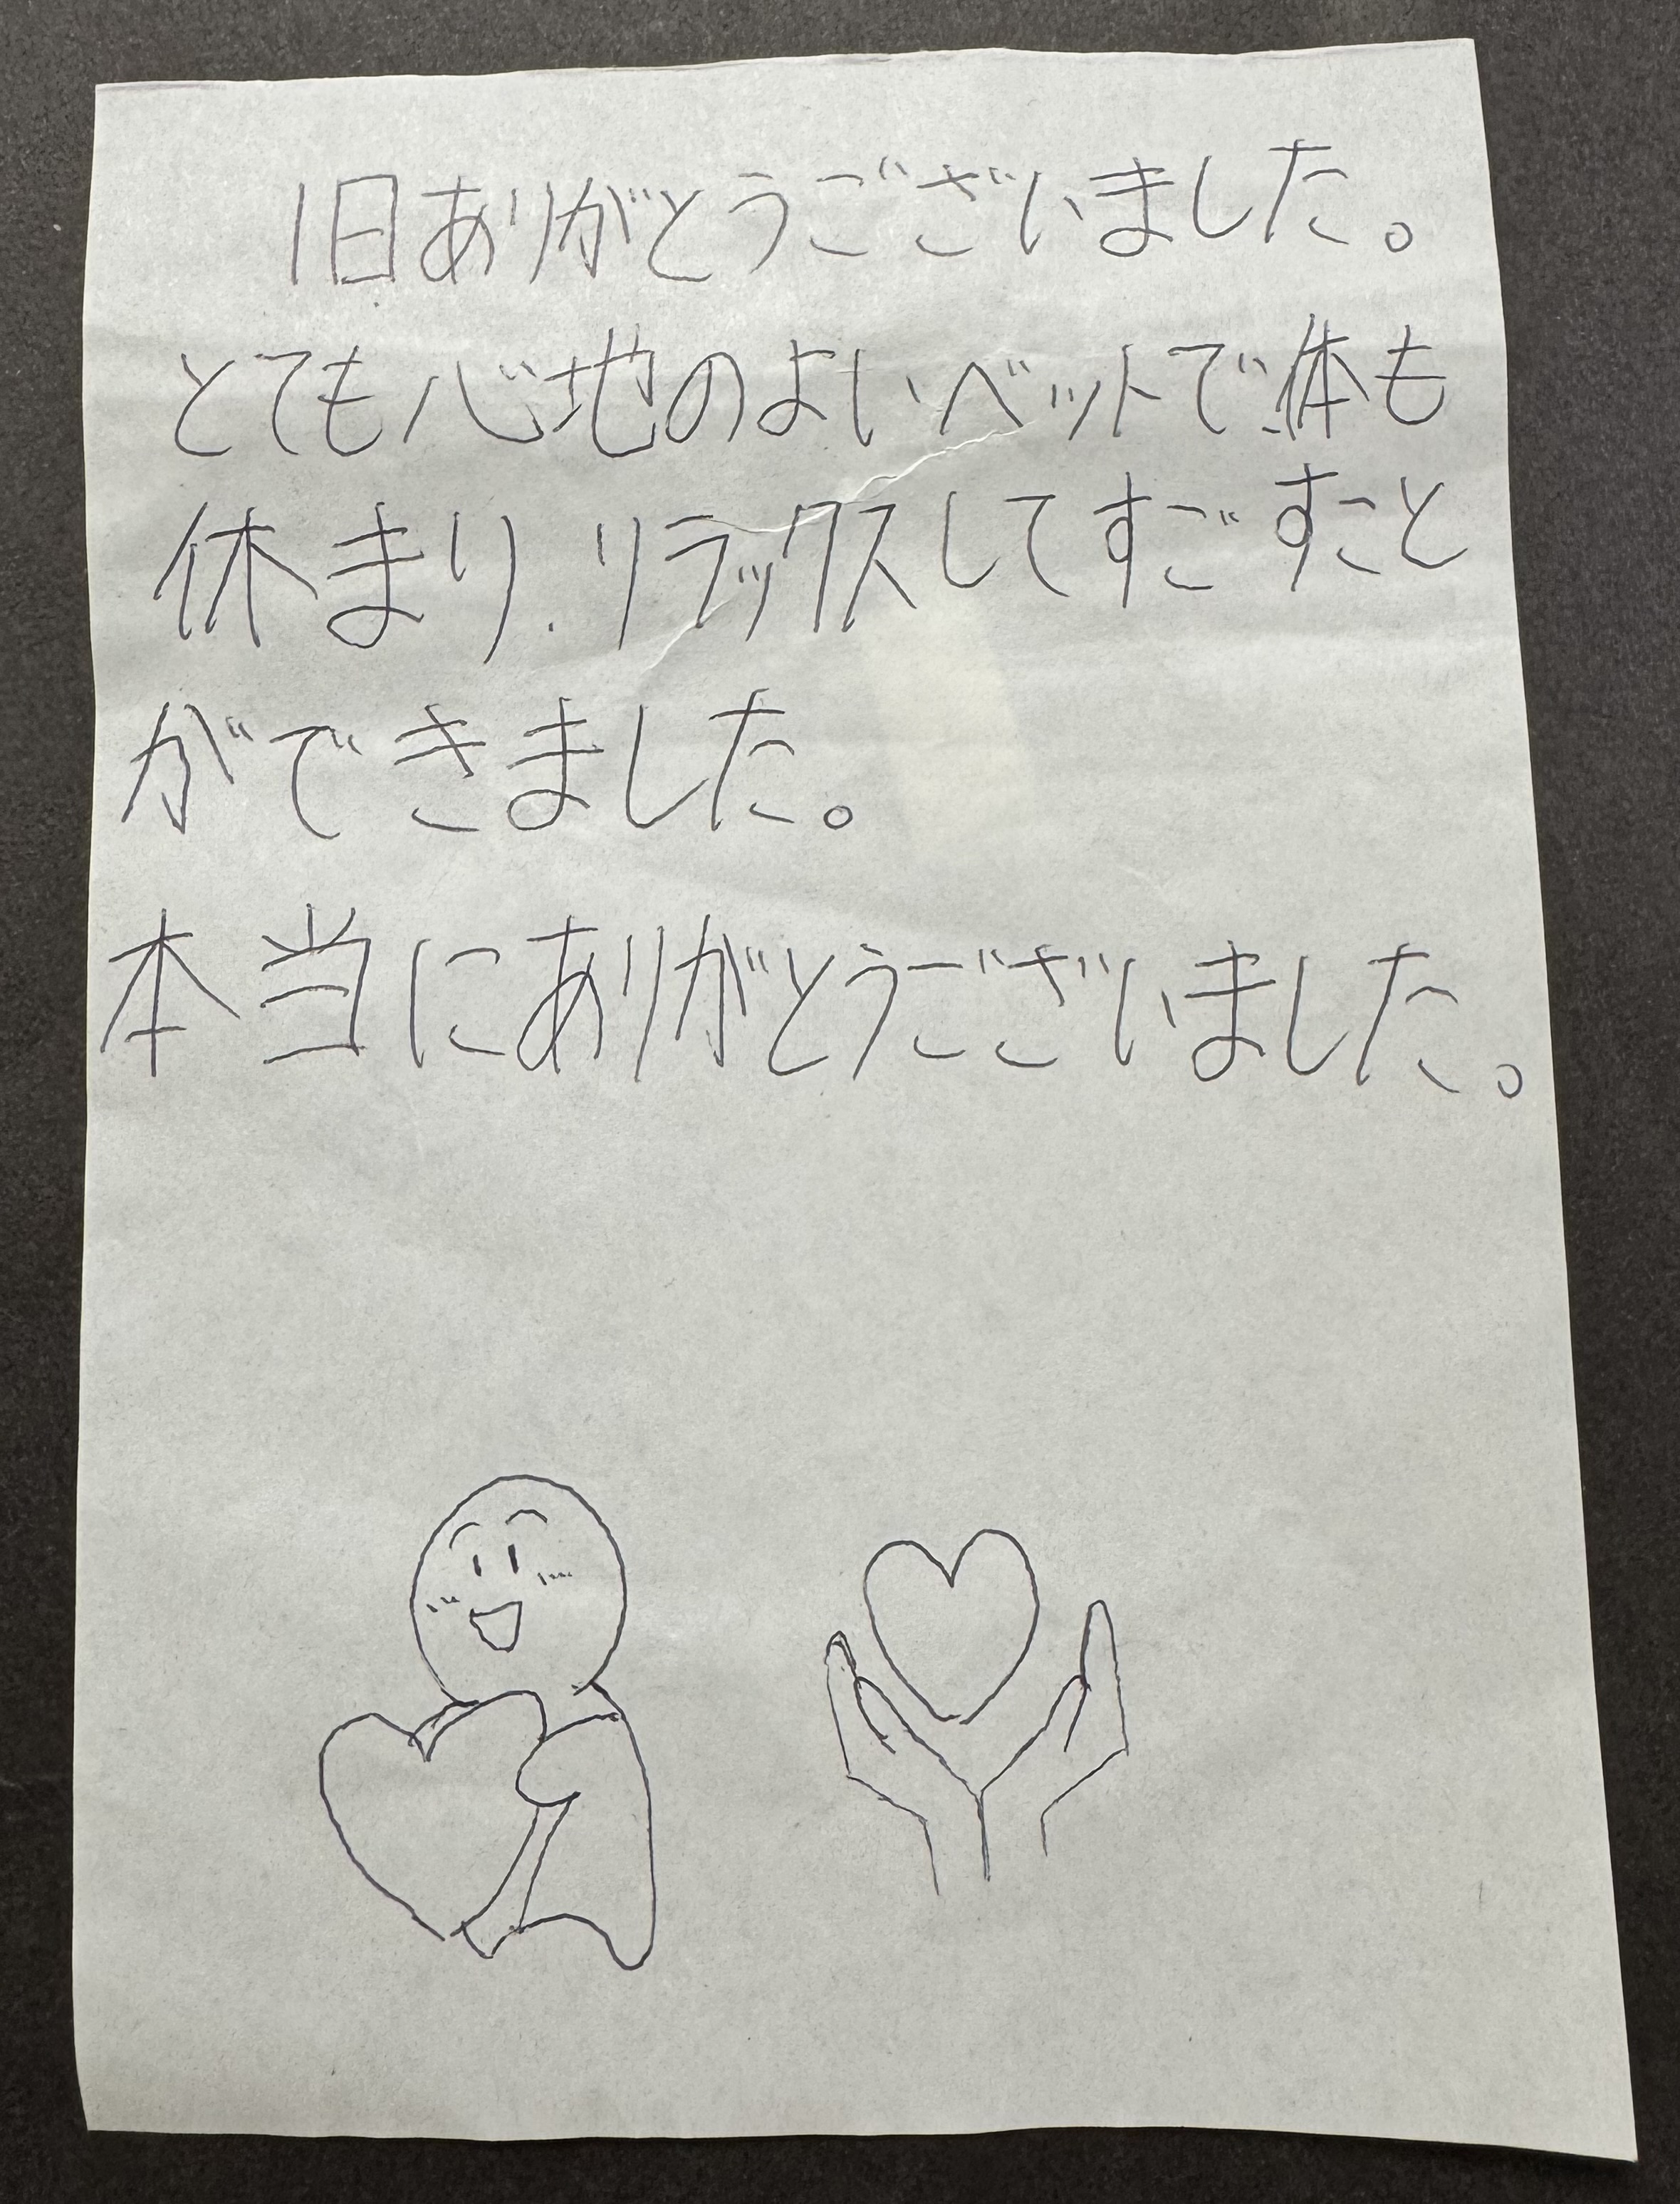 1日ありがとうございました。
とても心地のよいベットで体も
休まり、リラックスしてすごすこと
ができました。
本当にありがとうございました。